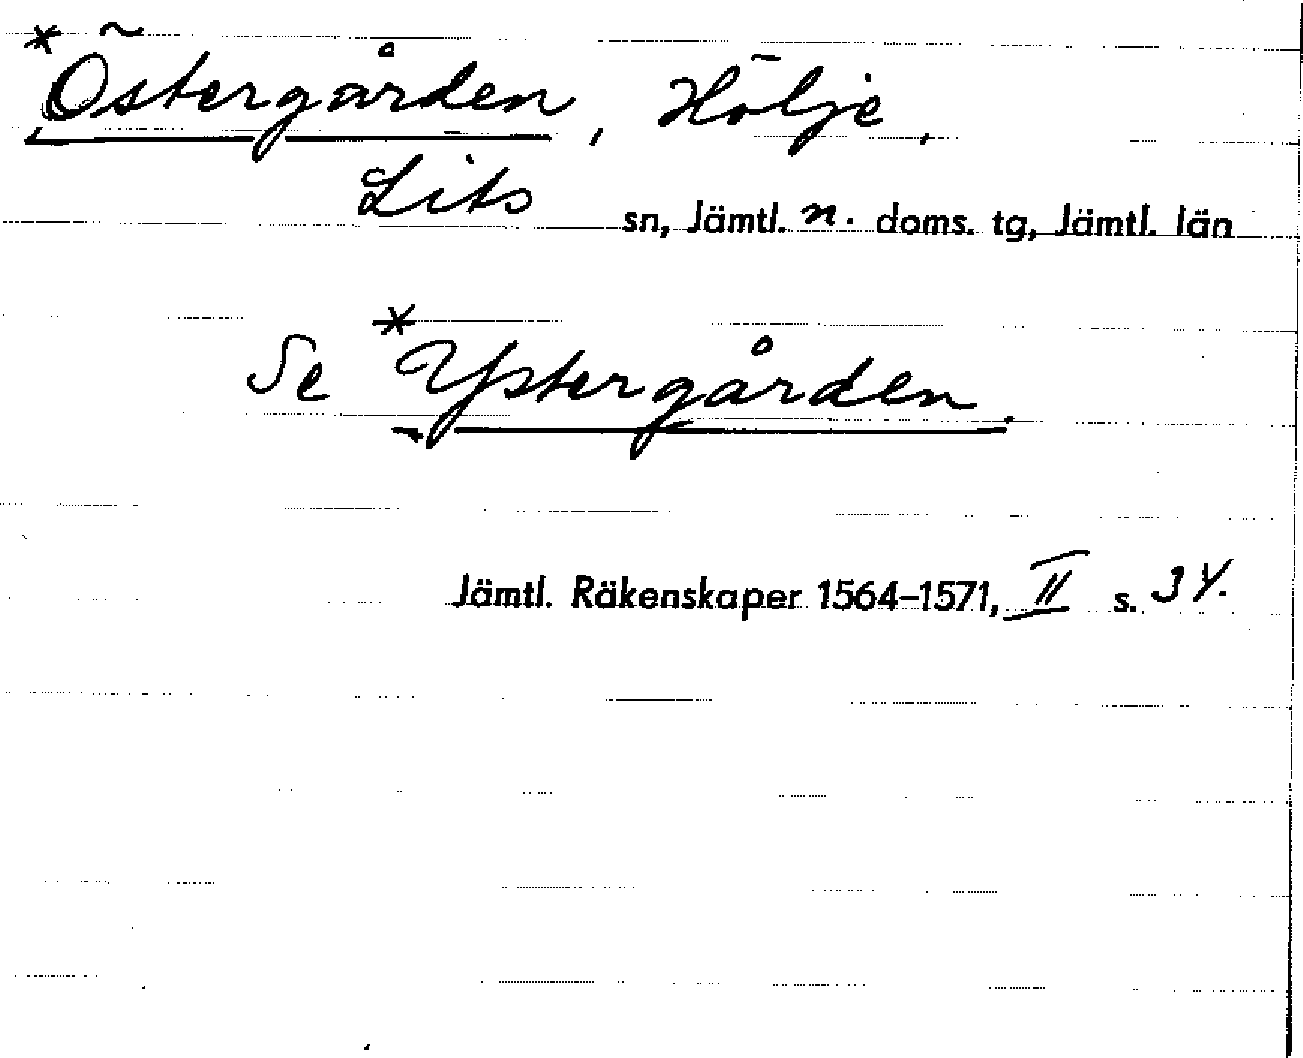 *Östergården, Hölje,
Lits sn, Jämtl. n. doms. tg, Jämtl. län
Se *Ystergården.
Jämtl. Räkenskaper 1564–1571, II s. 34.